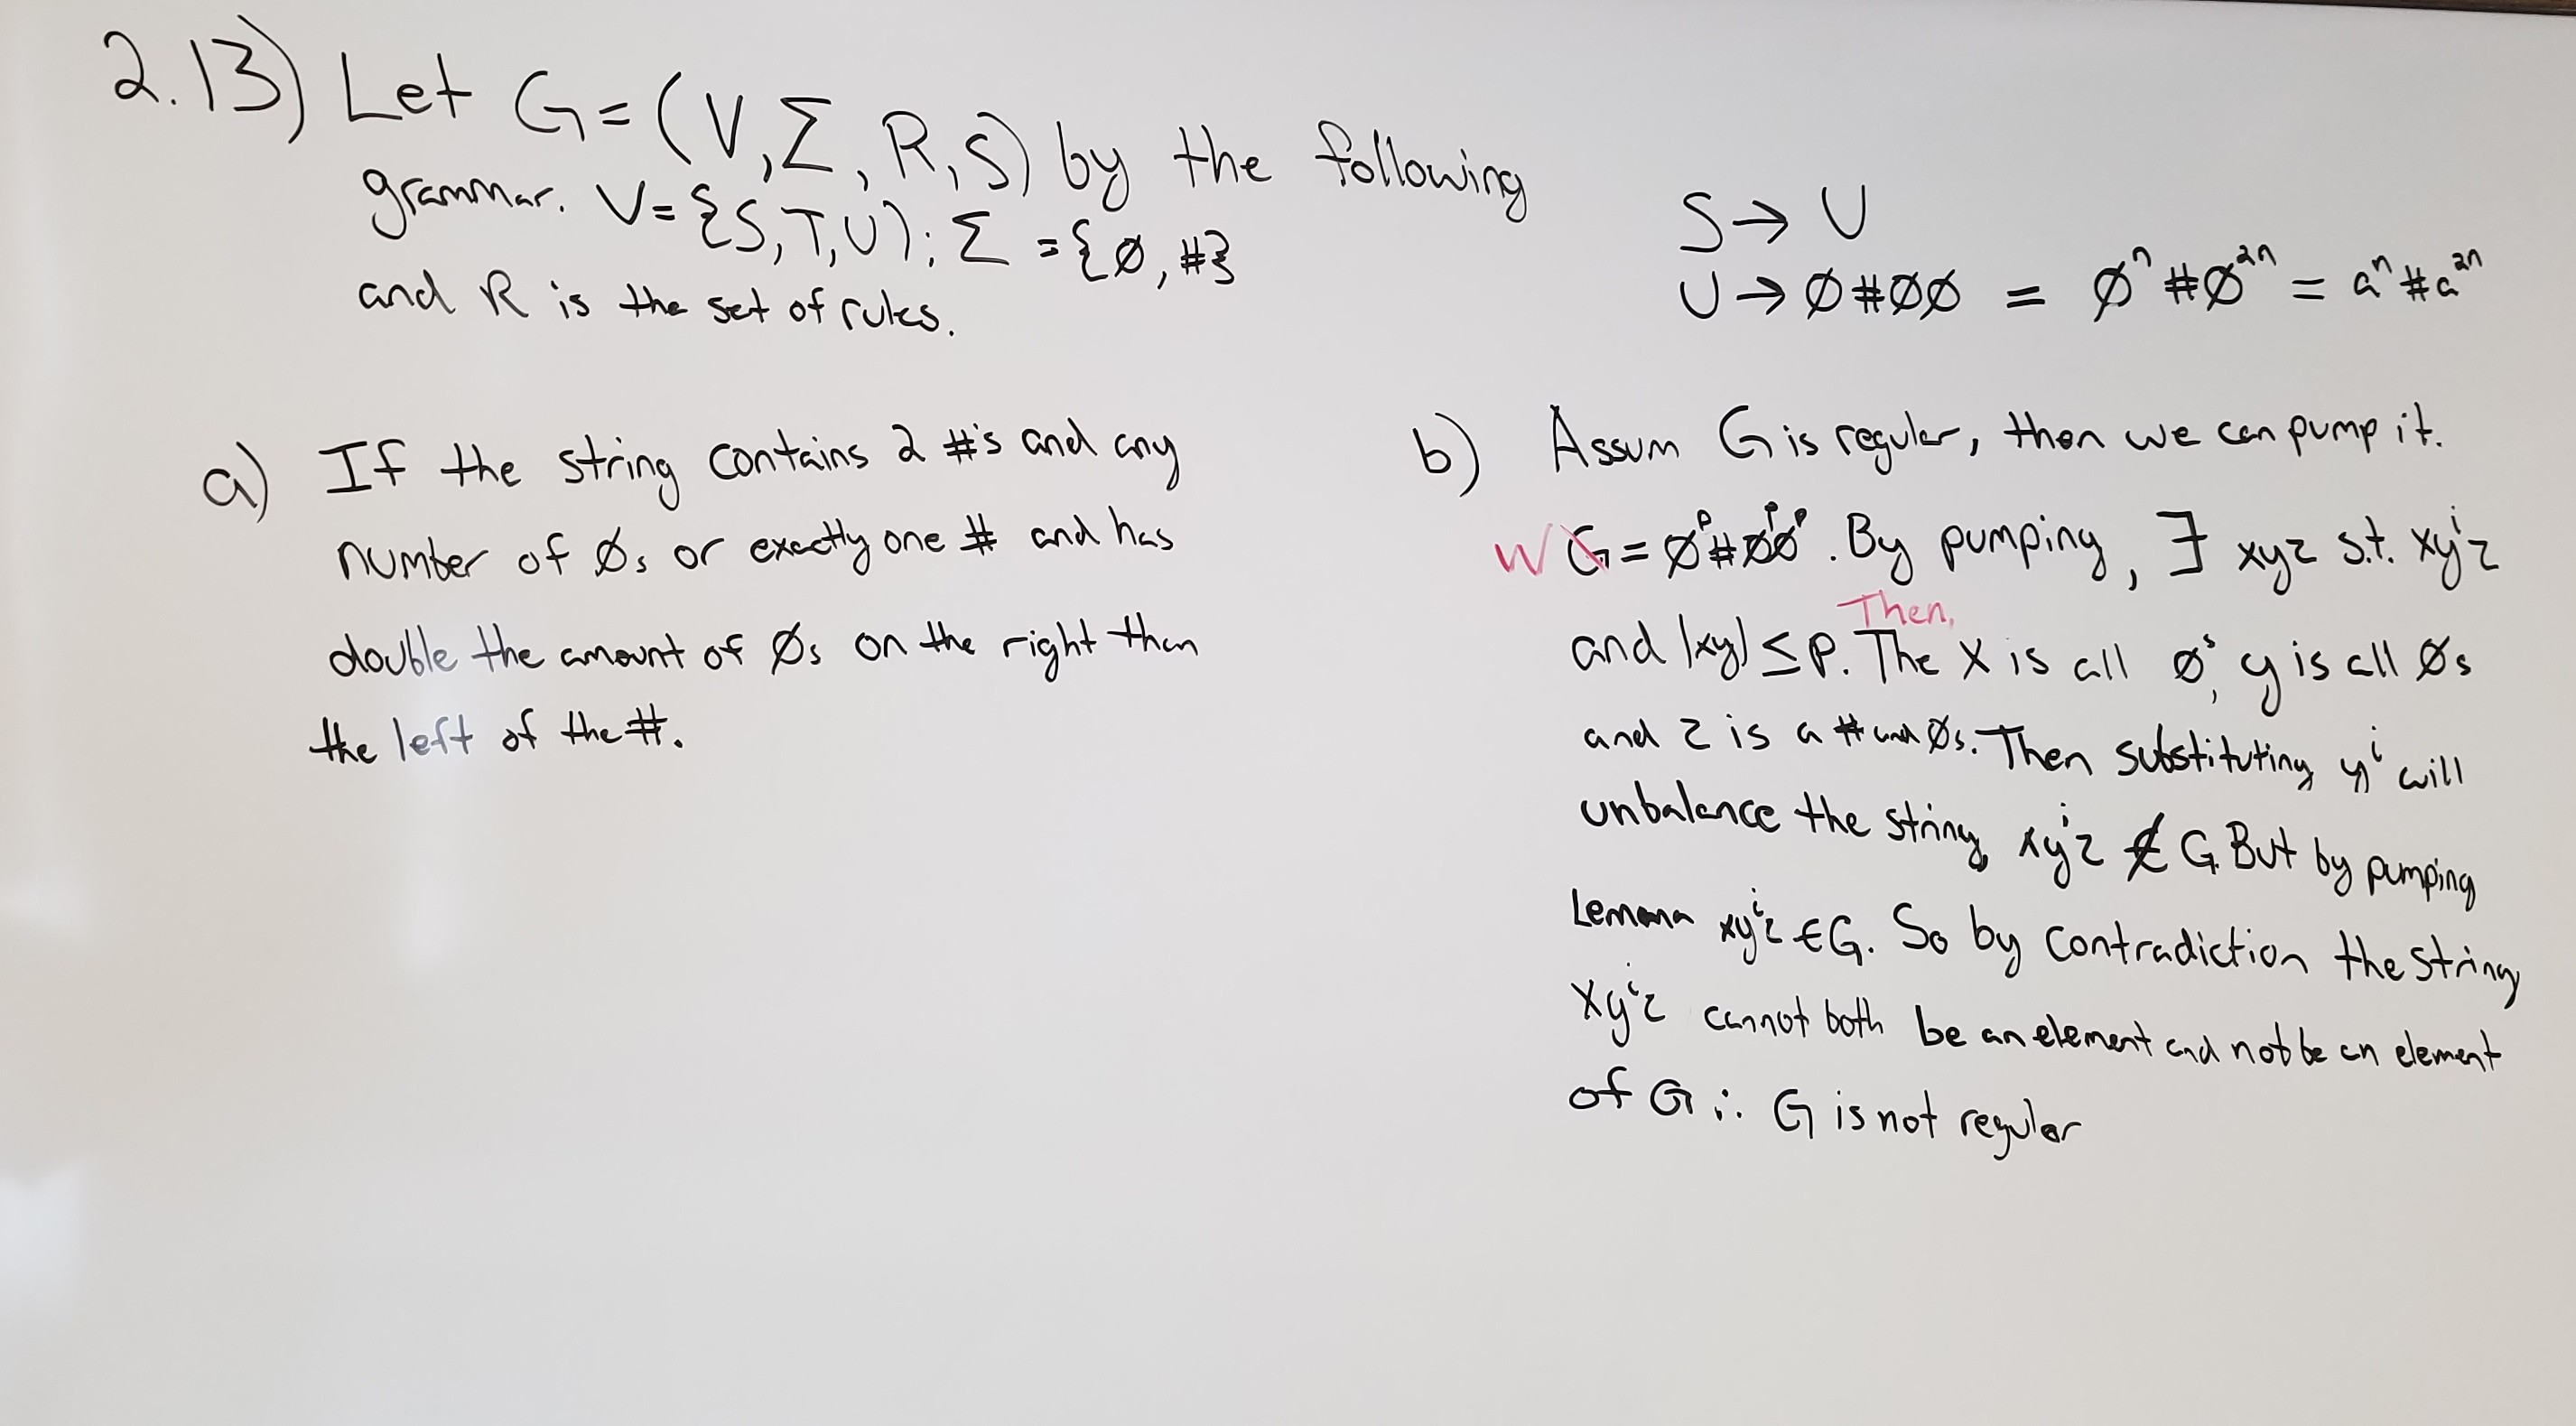 2.13) Let G = (V, Σ, R, S) by the following
grammar. V = {S, T, U}; Σ = {Ø, #}
and R is the set of rules.
S → U
U → Ø#ØØ = Øⁿ#Ø²ⁿ = aⁿ#a²ⁿ
a) If the string contains 2 #'s and any
number of Øs or exactly one # and has
double the amount of Øs on the right than
the left of the #.
b) Assum G is regular, then we can pump it.
W G = Øᵖ#ØᵖØᵖ. By pumping, ∃ xyz s.t. xyⁱz
Then,
and |xy| ≤ p. The x is all Øs, y is all Øs
and z is a # and Øs. Then substituting yⁱ will
unbalance the string, xyⁱz ∉ G. But by pumping
Lemma xyⁱz ∈ G. So by contradiction the string
xyⁱz cannot both be an element and not be an element
of G ∴ G is not regular